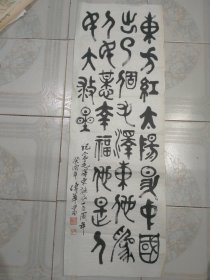 東方紅太陽昇中國
出了個毛澤東他為
人民謀幸福他是人
民大救星